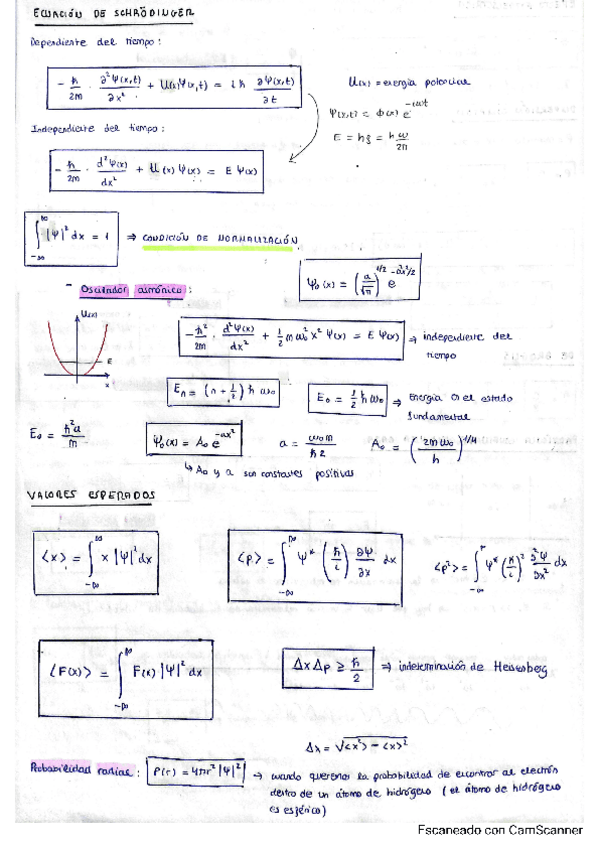 ECUACIÓN DE SCHRÖDINGER
Dependiente del tiempo:
- ℏ/2m · ∂²Ψ(x,t)/∂x² + U(x)Ψ(x,t) = iℏ ∂Ψ(x,t)/∂t
U(x) = energía potencial
Ψ(x,t) = Φ(x) e^(-iωt)
Independiente del tiempo:
- ℏ/2m · d²Ψ(x)/dx² + U(x) Ψ(x) = E Ψ(x)
∫_{-∞}^{∞} |Ψ|² dx = 1 ⇒ CONDICIÓN DE NORMALIZACIÓN
- Oscilador armónico:
Ψ₀(x) = (a/√π)^(1/2) e^(-a²x²/2)
U(x)
E
x
-ℏ²/2m · d²Ψ(x)/dx² + 1/2 m ω₀² x² Ψ(x) = E Ψ(x) ⇒ independiente del tiempo
Eₙ = (n + 1/2) ℏ ω₀
E₀ = 1/2 ℏ ω₀ ⇒ Energía en el estado fundamental
E₀ = ℏ²a/m
Ψ₀(x) = A₀ e^(-ax²)
a = ω₀m/ℏ2
A₀ = (2mω₀/h)^(1/4)
↳ A₀ y a son constantes positivas
VALORES ESPERADOS
⟨x⟩ = ∫_{-∞}^{∞} x |Ψ|² dx
⟨p⟩ = ∫_{-∞}^{∞} Ψ* (ℏ/i) ∂Ψ/∂x dx
⟨p²⟩ = ∫_{-∞}^{∞} Ψ* (ℏ/i)² ∂²Ψ/∂x² dx
⟨F(x)⟩ = ∫_{-∞}^{∞} F(x) |Ψ|² dx
Δx Δp ≥ ℏ/2 ⇒ indeterminación de Heisenberg
Δx = √(⟨x²⟩ - ⟨x⟩²)
Probabilidad radial: P(r) = 4πr² |Ψ|² → cuando queremos la probabilidad de encontrar al electrón
dentro de un átomo de hidrógeno (el átomo de hidrógeno
es esférico)
Escaneado con CamScanner